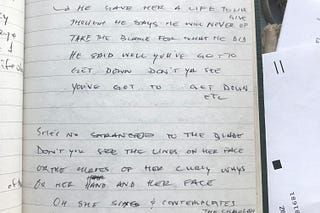 HE GAVE HER A LIFE TOUR
GIVE
THOUGH HE SAYS HE WILL NEVER
TAKE THE BLAME FOR WHAT HE DID
HE SAID WELL YOU'VE GOT TO
GET DOWN DON'T YA SEE
YOU'VE GOT TO GET DOWN
ETC
SHE'S NO STRANGER TO THE BLADE
DON'T YOU SEE THE LINES ON HER FACE
OR THE OF HER CURLY WAYS
OR HER HAND AND HER FACE
OH SHE & CONTEMPLATES
THE
11